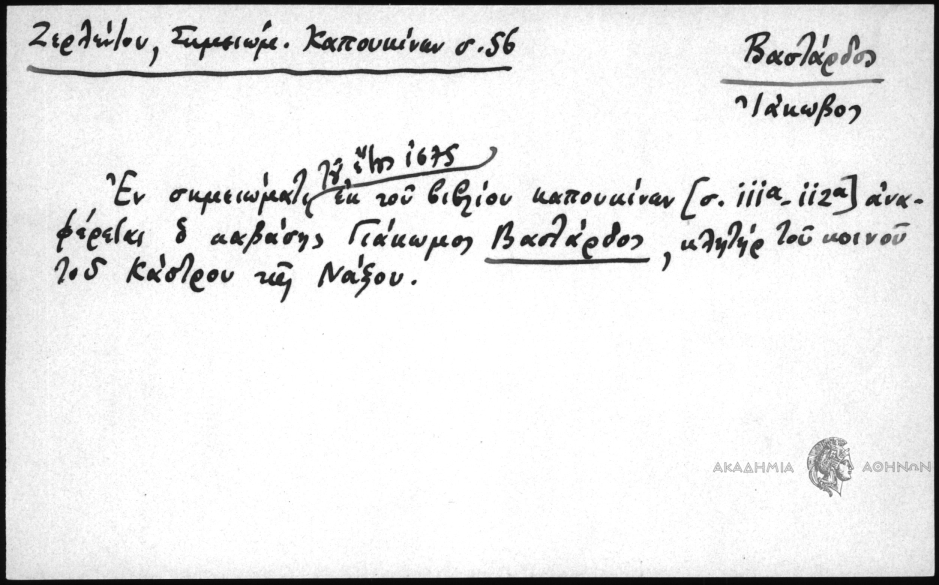 Ζερλέντου, Σημειώμ. Καπουκίνων σ. 56
Βαστάρδος
Ἰάκωβος
τοῦ ἔτους 1675
Ἐν σημειώματι ἐκ τοῦ βιβλίου καπουκίνων [σ. 111α-112α] ἀνα-
φέρεται ὁ καβάσης Γιάκωμος Βαστάρδος, κλητὴρ τοῦ κοινοῦ
τοῦ Κάστρου τῆς Νάξου.
ΑΚΑΔΗΜΙΑ ΑΘΗΝΩΝ